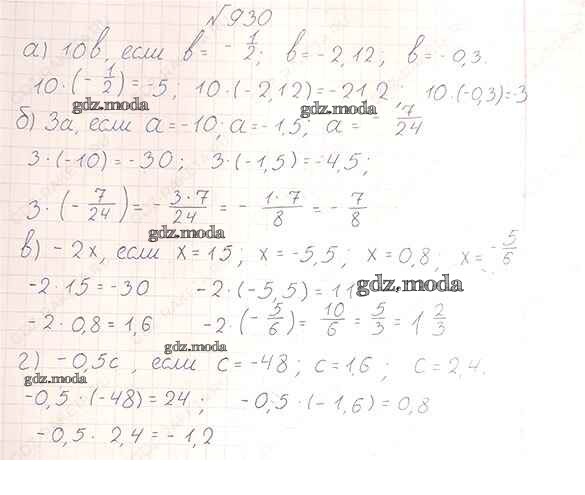 №930
а) 10b, если b = -1/2; b = -2,12; b = -0,3.
10·(-1/2) = -5; 10·(-2,12) = -21,2 10·(-0,3) = -3
gdz.moda gdz.moda
б) 3a, если a = -10; a = -1,5; a = -7/24
3·(-10) = -30; 3·(-1,5) = -4,5;
3·(-7/24) = -3·7/24 = -1·7/8 = -7/8
gdz.moda
в) -2x, если x = 15; x = -5,5; x = 0,8 x = -5/6
-2·15 = -30 -2·(-5,5) = 11 gdz.moda
-2·0,8 = 1,6 -2·(-5/6) = 10/6 = 5/3 = 1 2/3
gdz.moda
г) -0,5c, если c = -48; c = 1,6; c = 2,4.
gdz.moda
-0,5·(-48) = 24; -0,5·(-1,6) = 0,8
-0,5·2,4 = -1,2